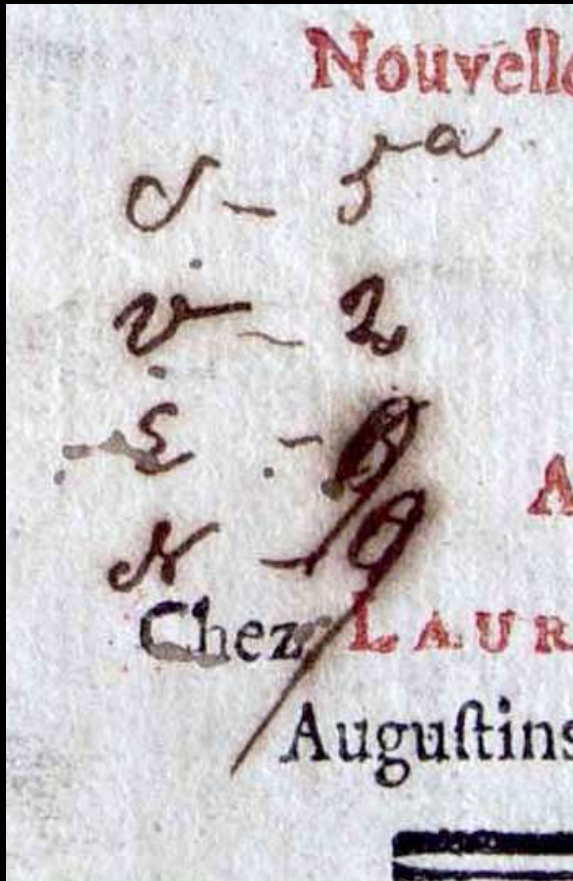 Nouvelle
S - 5a
V - 2
E - 8
N - 19
A
Chez LAUR
Auguſtins